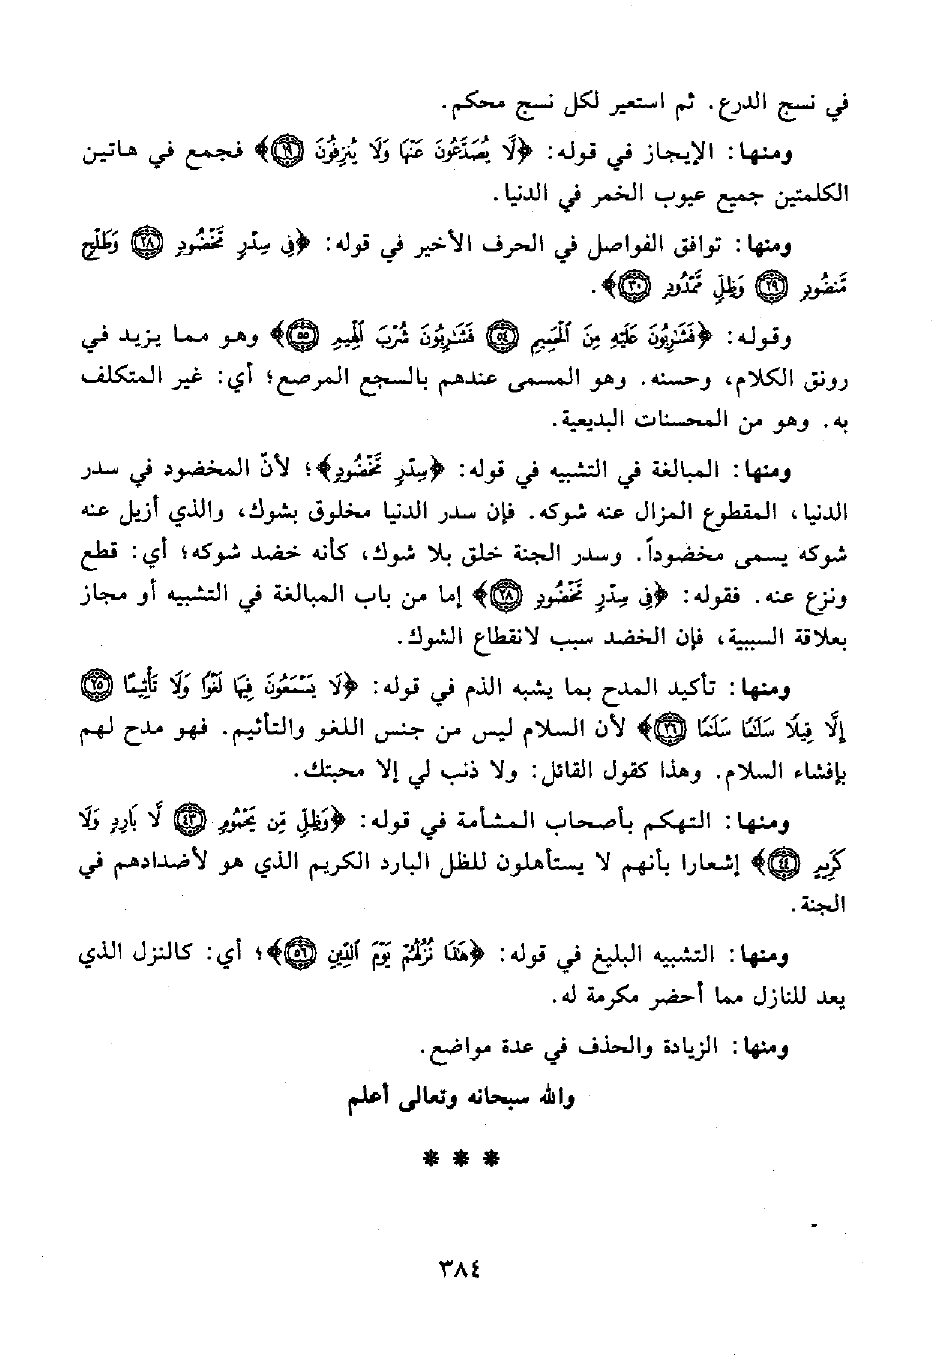 في نسج الدرع. ثم استعير لكل نسج محكم.
ومنها: الإيجاز في قوله: ﴿لَّا يُصَدَّعُونَ عَنْهَا وَلَا يُنزِفُونَ ⑲﴾ فجمع في هاتين
الكلمتين جميع عيوب الخمر في الدنيا.
ومنها: توافق الفواصل في الحرف الأخير في قوله: ﴿فِي سِدْرٍ مَّخْضُودٍ ٢٨ وَطَلْحٍ
مَّنضُودٍ ٢٩ وَظِلٍّ مَّمْدُودٍ ٣٠﴾.
وقوله: ﴿فَشَٰرِبُونَ عَلَيْهِ مِنَ ٱلْحَمِيمِ ٥٤ فَشَٰرِبُونَ شُرْبَ ٱلْهِيمِ ٥٥﴾ وهو مما يزيد في
رونق الكلام، وحسنه. وهو المسمى عندهم بالسجع المرصع؛ أي: غير المتكلف
به. وهو من المحسنات البديعية.
ومنها: المبالغة في التشبيه في قوله: ﴿سِدْرٍ مَّخْضُودٍ﴾؛ لأنّ المخضود في سدر
الدنيا، المقطوع المزال عنه شوكه. فإن سدر الدنيا مخلوق بشوك، والذي أزيل عنه
شوكه يسمى مخضوداً. وسدر الجنة خلق بلا شوك، كأنه خضد شوكه؛ أي: قطع
ونزع عنه. فقوله: ﴿فِي سِدْرٍ مَّخْضُودٍ ٢٨﴾ إما من باب المبالغة في التشبيه أو مجاز
بعلاقة السببية، فإن الخضد سبب لانقطاع الشوك.
ومنها: تأكيد المدح بما يشبه الذم في قوله: ﴿لَا يَسْمَعُونَ فِيهَا لَغْوًا وَلَا تَأْثِيمًا ٢٥
إِلَّا قِيلًا سَلَٰمًا سَلَٰمًا ٢٦﴾ لأن السلام ليس من جنس اللغو والتأثيم. فهو مدح لهم
بإفشاء السلام. وهذا كقول القائل: ولا ذنب لي إلا محبتك.
ومنها: التهكم بأصحاب المشأمة في قوله: ﴿وَظِلٍّ مِّن يَحْمُومٍ ٤٣ لَّا بَارِدٍ وَلَا
كَرِيمٍ ٤٤﴾ إشعارا بأنهم لا يستأهلون للظل البارد الكريم الذي هو لأضدادهم في
الجنة.
ومنها: التشبيه البليغ في قوله: ﴿هَٰذَا نُزُلُهُمْ يَوْمَ ٱلدِّينِ ٥٦﴾؛ أي: كالنزل الذي
يعد للنازل مما أحضر مكرمة له.
ومنها: الزيادة والحذف في عدة مواضع.
والله سبحانه وتعالى أعلم
* * *
٣٨٤